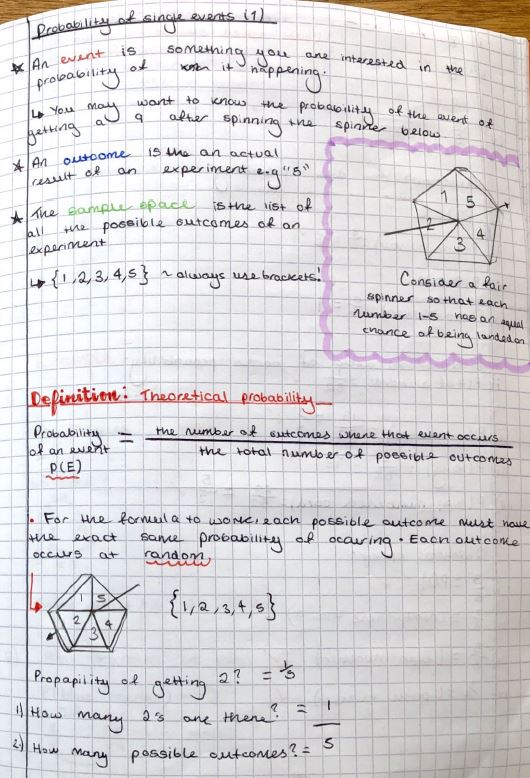 Probability of single events (1)
* An event is something you are interested in the
probability of it happening.
↳ You may want to know the probability of the event of
getting a 9 after spinning the spinner below
* An outcome is the an actual
result of an experiment e.g "5"
* The sample space is the list of
all the possible outcomes of an
experiment
↳ {1,2,3,4,5} ~ always use brackets!
1 5
2 4
3
Consider a fair
spinner so that each
number 1-5 has an equal
chance of being landed on
Definition: Theoretical probability
Probability of an event P(E) = the number of outcomes where that event occurs
the total number of possible outcomes
• For the formula to work, each possible outcome must have
the exact same probability of occuring. Each outcome
occurs at random
1 5
2 4
3
{1,2,3,4,5}
Propapility of getting 2? = 1/5
1) How many 2's are there? = 1
2) How many possible outcomes? = 5